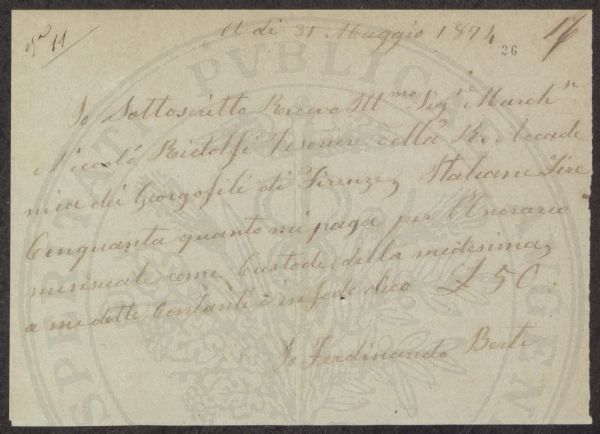 N° 11
A di 31 Maggio 1874
26
17
Io Sottoscritto Ricevo Ill.mo Sig.r March.se
Niccolò Ridolfi Tesoriere della R. Accade
mia dei Georgofili di Firenze, Italiane Lire
Cinquanta quanto mi paga per l'Onorario
mensuale come Custode della medesima,
a me dette Contanti e in fede dico £ 50
Io Ferdinando Berti
PUBLICA
PROSPERITATI AUGENDAE